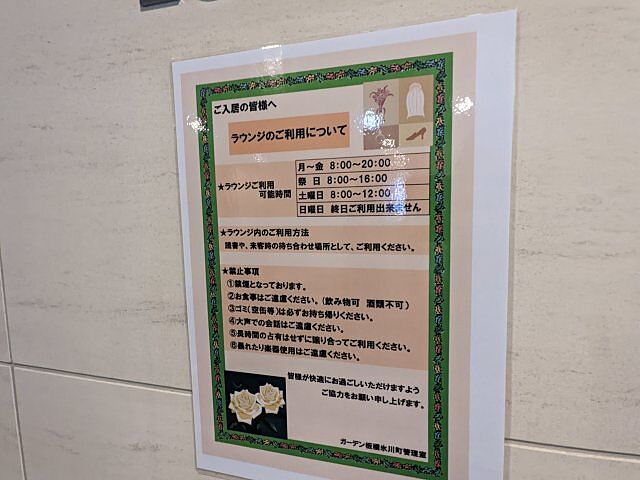 ご入居の皆様へ
ラウンジのご利用について
★ラウンジご利用
可能時間
月～金 8:00～20:00
祭 日 8:00～16:00
土曜日 8:00～12:00
日曜日 終日ご利用出来ません
★ラウンジ内のご利用方法
読書や、来客時の待ち合わせ場所として、ご利用ください。
★禁止事項
①禁煙となっております。
②お食事はご遠慮ください。(飲み物可 酒類不可)
③ゴミ(空缶等)は必ずお持ち帰りください。
④大声での会話はご遠慮ください。
⑤長時間の占有はせずに譲り合ってご利用ください。
⑥暴れたり楽器使用はご遠慮ください。
皆様が快適にお過ごしいただけますよう
ご協力をお願い申し上げます。
ガーデン板橋氷川町管理室